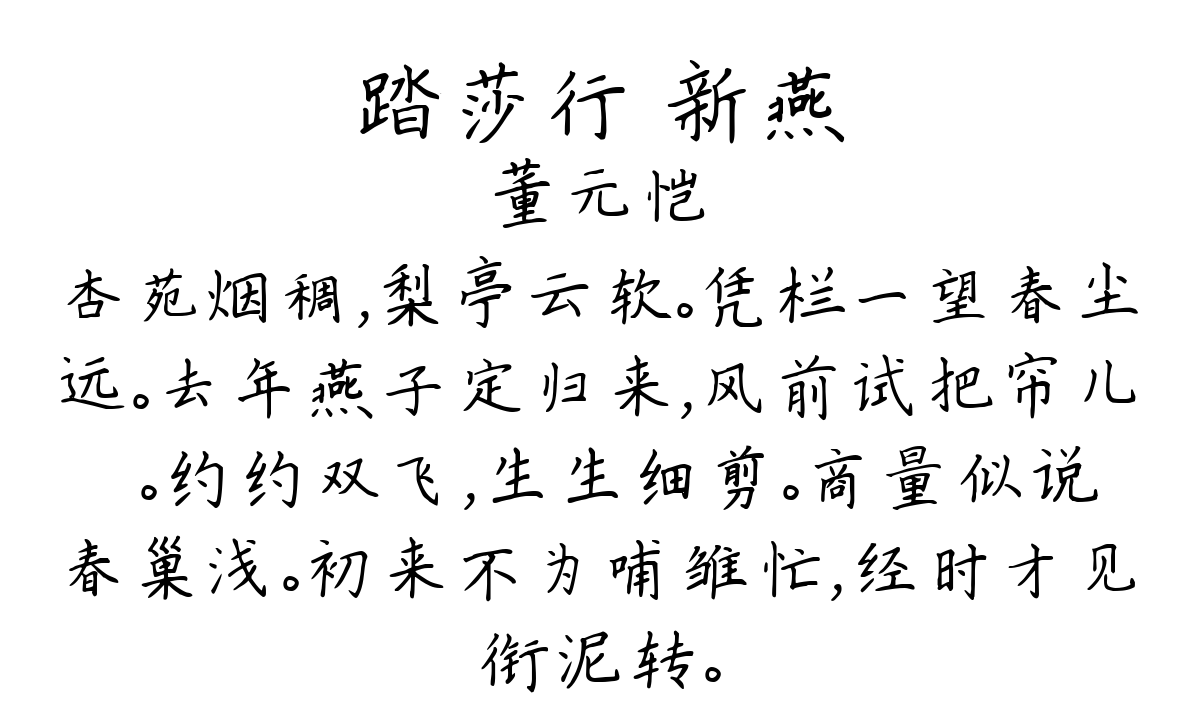 踏莎行 新燕
董元恺
杏苑烟稠,梨亭云软。凭栏一望春尘
远。去年燕子定归来,风前试把帘儿
。约约双飞,生生细剪。商量似说
春巢浅。初来不为哺雏忙,经时才见
衔泥转。